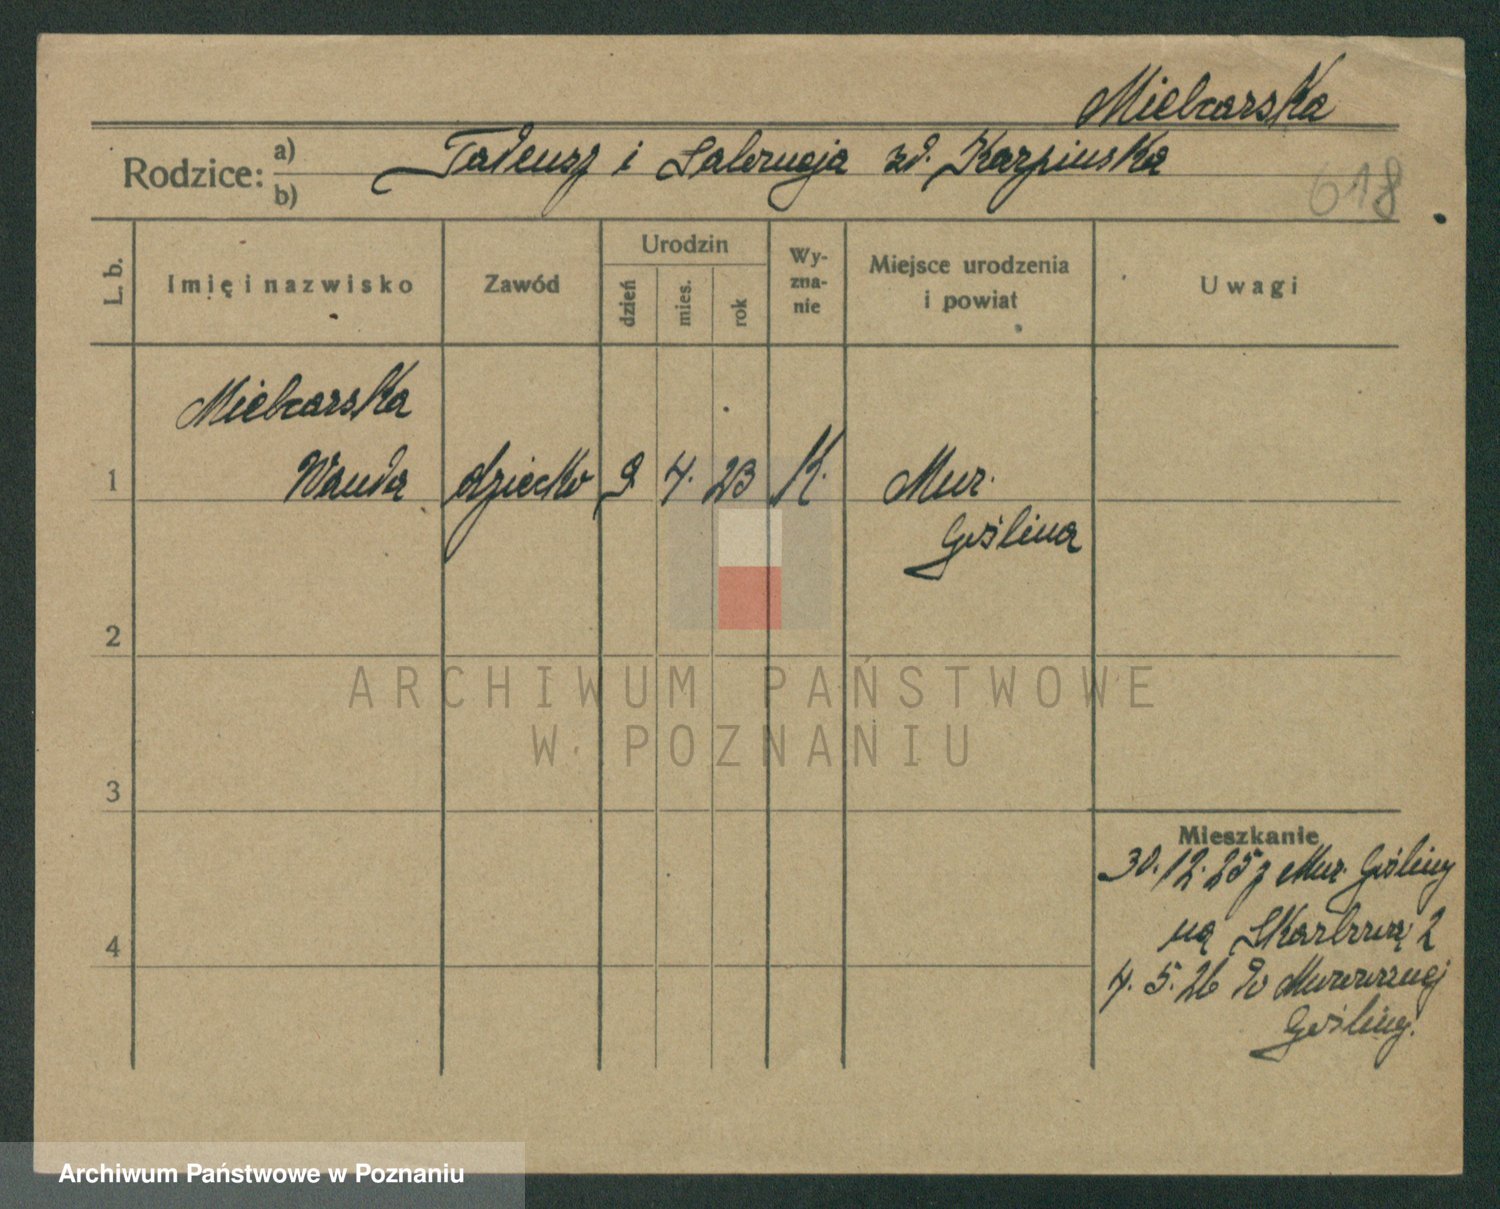 Mielcarska
Rodzice: a) b) Tadeusz i Salomeja zd. Karpinska
618
L. b. Imię i nazwisko Zawód Urodzin dzień mies. rok Wy-zna-nie Miejsce urodzenia i powiat Uwagi
Mielcarska
1 Wanda dziecko 9. 4. 23 K. Mur.
Goślina
2
ARCHIWUM PAŃSTWOWE
W POZNANIU
3
Mieszkanie
30.12.25 z Mur. Gośliny
na Skarbową 2
4
4.5.26 do Murowanej
Gośliny.
Archiwum Państwowe w Poznaniu